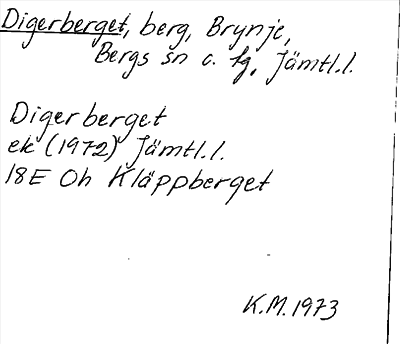 Digerberget, berg, Brynje,
Bergs sn o. tg, Jämtl.l.
Digerberget
ek (1972) Jämtl.l.
18E Oh Kläppberget
K.M. 1973